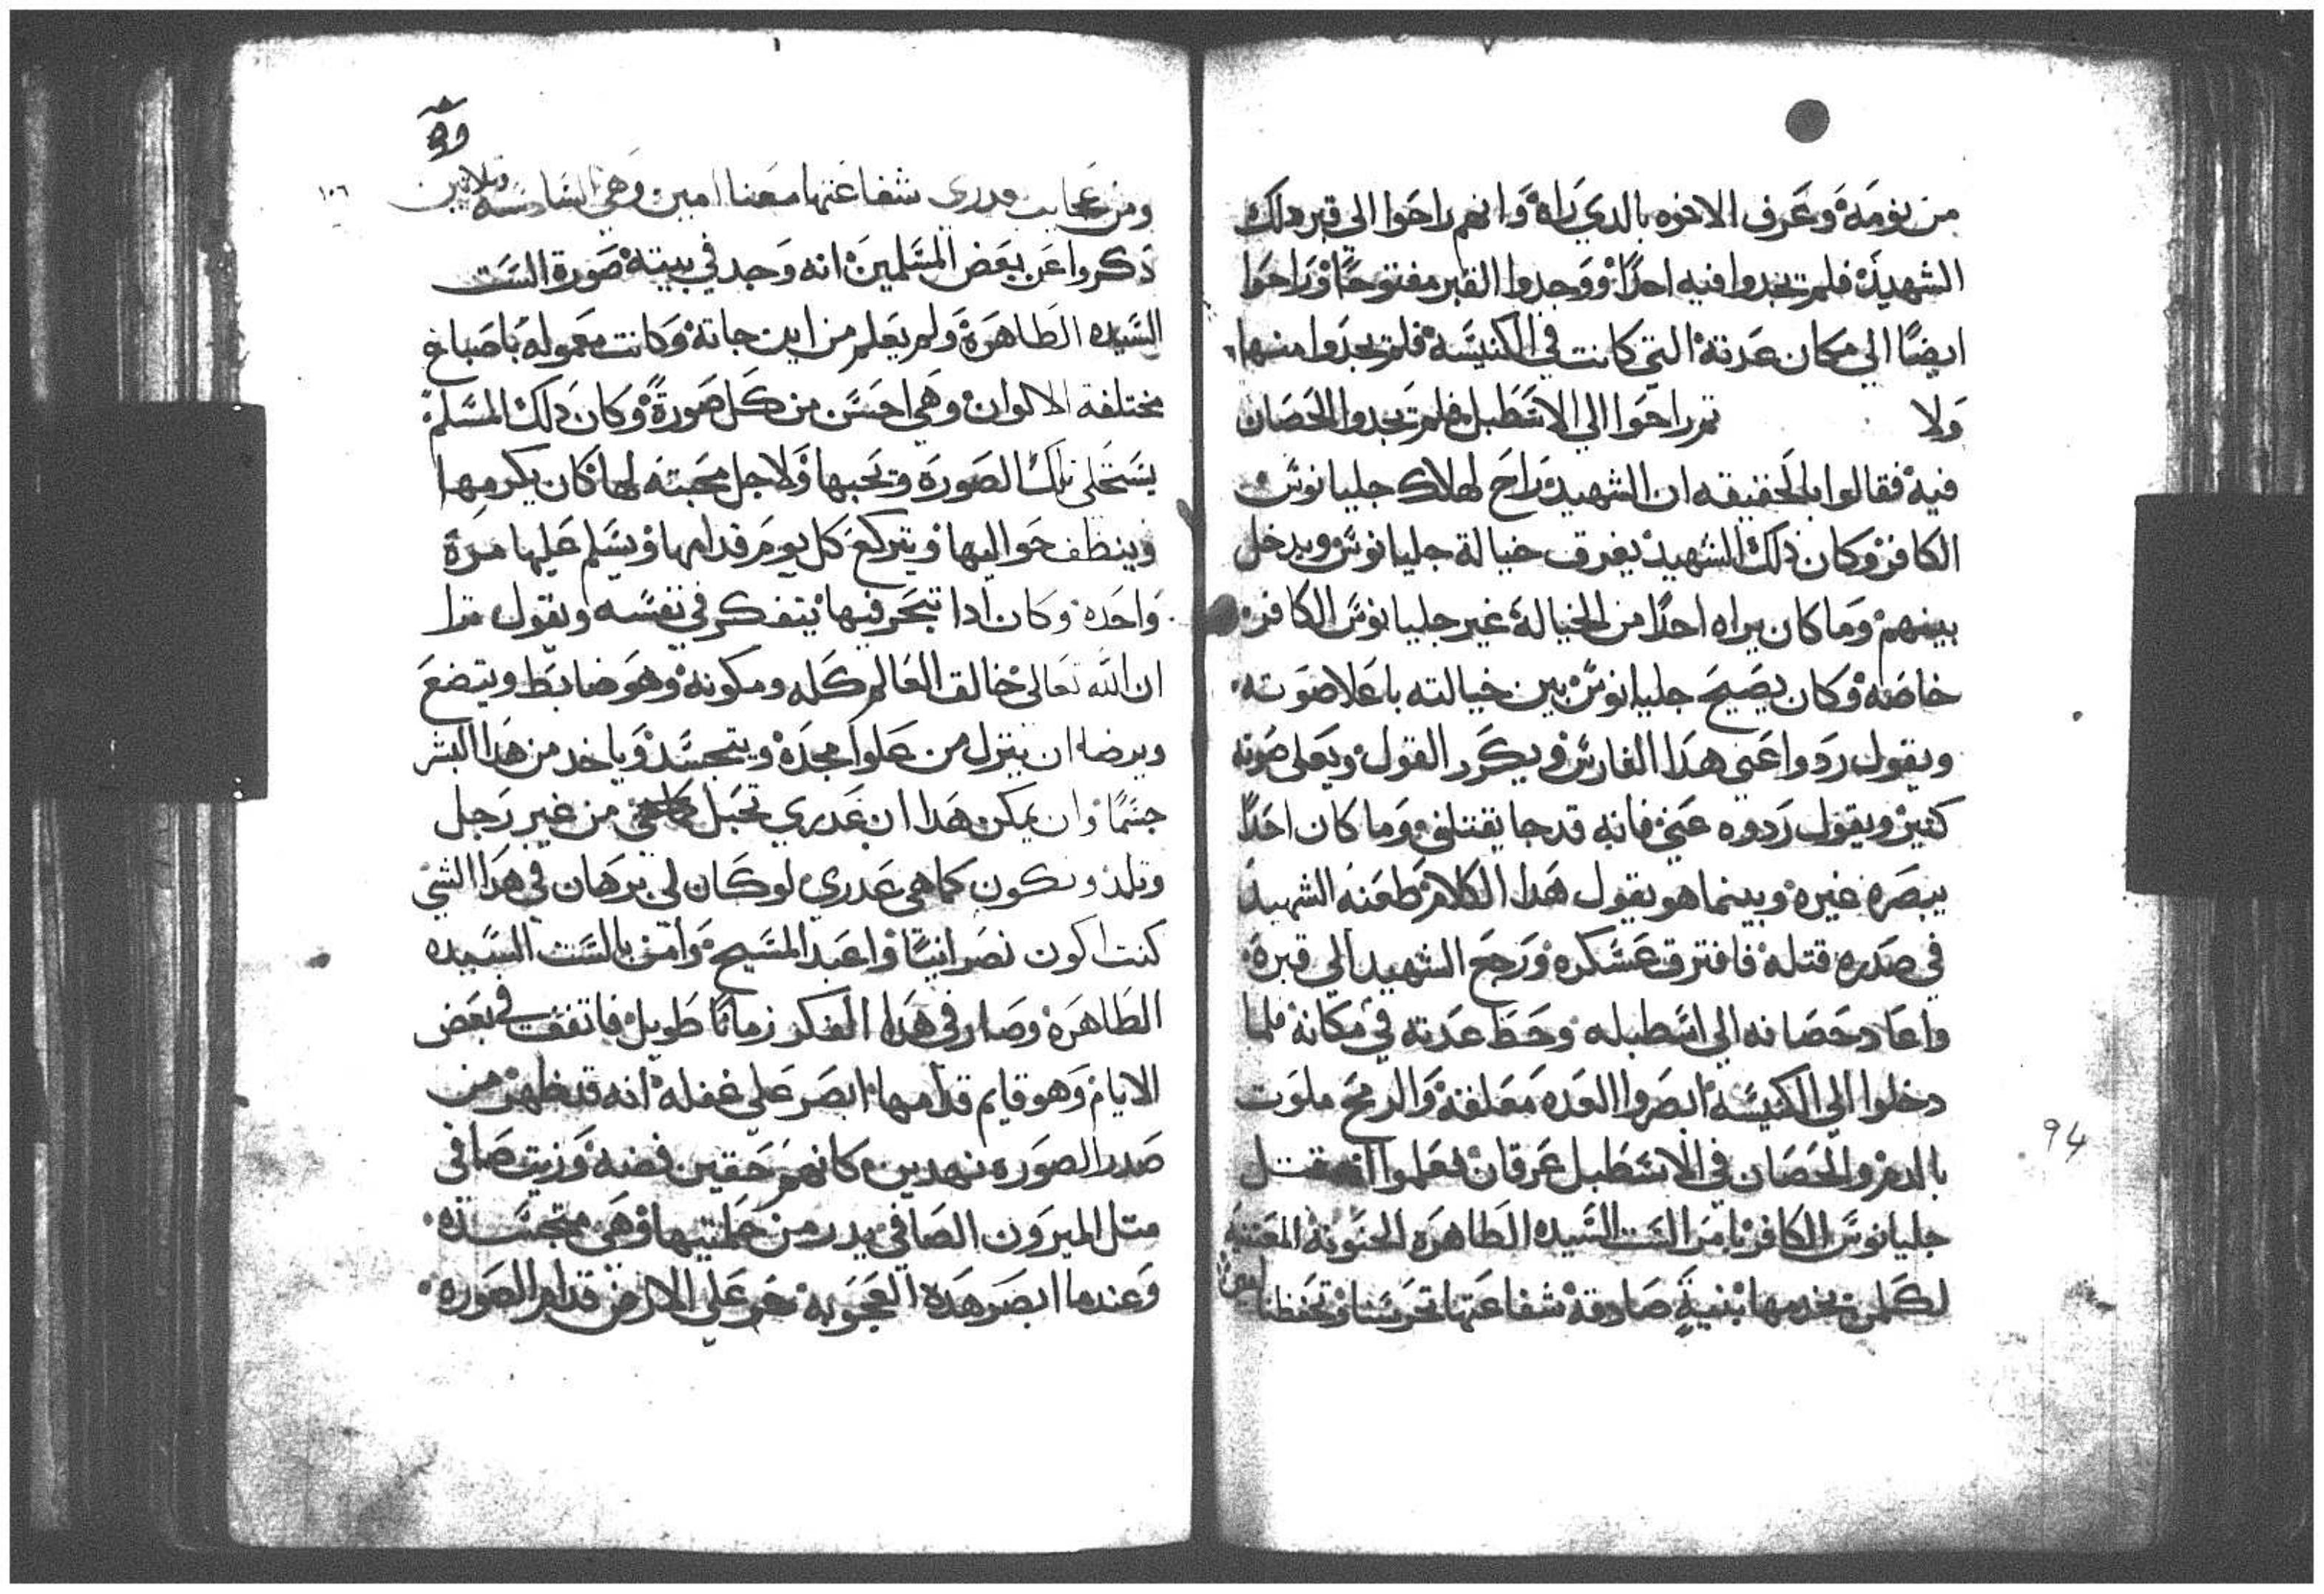 من نومة وعرف الاخوه بالدي راه وانهم راحوا الي قبر دلك
الشهيد فلم يجدوا فيه احدًا ووجدوا القبر مفتوحًا وراحوا
ايضًا الي مكان عدتة التي كانت في الكنيسة فلم يجدوا منها
ولا تم راحوا الي الاسطبل فلم يجدوا الحصان
فية فقالوا بالحقيقه ان الشهيد راح لهلاك جليانوس
الكافر وكان دلك الشهيد يفرق خيالة جليانوس ويدخل
بينهم وما كان يراه احدًا من الخيالة غير جليانوس الكافر
خاصة وكان يصيح جليانوس بين خيالته باعلا صوته
ويقول ردوا عني هدا الفارس ويكرر القول ويعلي صوته
كتير ويقول ردوه عني فانه قد جا يقتلني وما كان احدًا
يبصره غيره وبينما هو يقول هدا الكلام طعنه الشهيد
في صدره قتله فافترق عسكره ورجع الشهيد الي قبره
واعاد حصانه الي اسطبله وحط عدته في مكانه فلما
دخلوا الي الكنيسة ابصروا العده معلقة والرمح ملوت
بالدم والحصان في الاسطبل عرقان فعلموا انه قتل
جليانوس الكافر بامر الست السيده الطاهره الحنونة المعتنية
لكلمن يخدمها بنيةٍ صادقة شفاعتها تحرسنا وتحفظنا امين
٩٤
١٠٦
ومن عجايب مدري شفاعتها معنا امين وهي السادسه وتلاتين
دكروا عن بعض المسلمين انه وجد في بيته صورة الست
السيده الطاهرة ولم يعلم من اين جاتة وكانت معموله باصباغ
مختلفة الالوان وهي احسن من كل صورة وكان دلك المسلم
يستحلي تلك الصورة ويحبها ولاجل محبته لها كان يكرمها
وينظف حواليها ويتركع كل يوم قدامها ويسلم عليها مرة
واحدة وكان ادا تبحر فيها يتفكر في نفسه ويقول ترا
ان الله تعالي خالق العالم كله ومكونة وهو ضابط ويتضع
ويرضا ان ينزل من علوا مجدة ويتجسد وياخد من هدا البشر
جسمًا وان يمكن هدا ان عدري تحبل من غير رجل
وتلد وتكون كما هي عدري لو كان لي برهان في هدا الشي
كنت اكون نصرانيًا واعبد المسيح وامن بالست السيده
الطاهره وصار في هدا الفكر زمانًا طويل فاتفق في بعض
الايام وهو قايم قدامها ابصر علي غفله انه قد ظهر من
صدر الصوره نهدين كانهم حقين فضة وزيت صافي
متل الميرون الصافي يدر من حلمتيها وهي متجسدة
وعندما ابصر هدة العجوبه خر علي الارض قدام الصوره